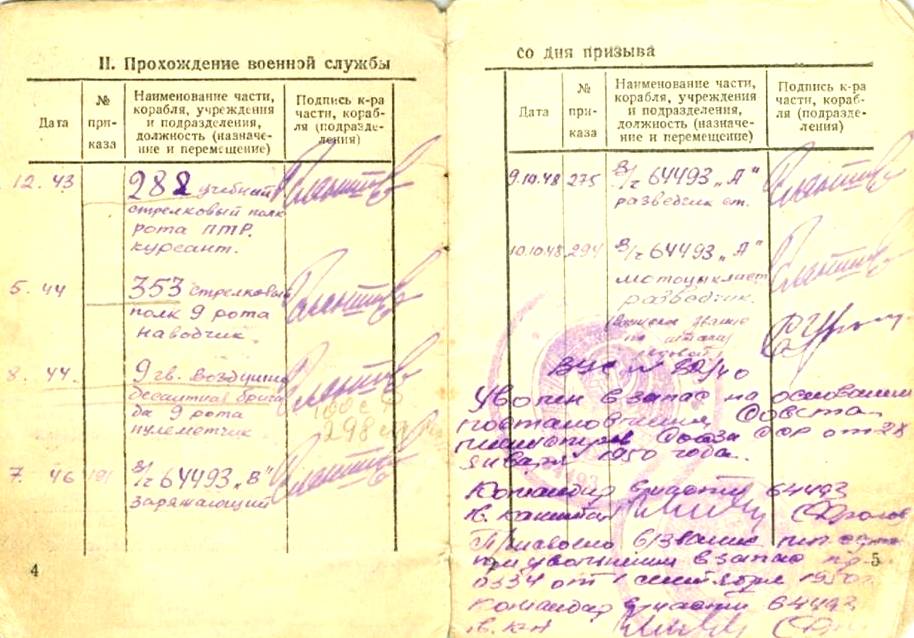 II. Прохождение военной службы
Дата
№ при-каза
Наименование части,
корабля, учреждения
и подразделения,
должность (назначе-
ние и перемещение)
Подпись к-ра
части, кораб-
ля (подразде-
ления)
12. 43
282 учебный
стрелковый полк
рота ПТР.
курсант.
5. 44
353 стрелковый
полк 9 рота
наводчик.
8. 44.
9 гв. воздушно
десантная брига
да 9 рота
пулеметчик
7. 46
в/ч 64493 „В"
заряжающий
4
со дня призыва
Дата
№ при-каза
Наименование части,
корабля, учреждения
и подразделения,
должность (назначе-
ние и перемещение)
Подпись к-ра
части, кораб-
ля (подразде-
ления)
9.10.48 275 в/ч 64493 „А"
разведчик от.
10.10.48 294 в/ч 64493 „А"
мотоциклист
разведчик.
ВУС №
Уволен в запас на основании
постановления Совета
министров Союза ССР от
января 1950 года.
Командир в/части 64493
Присвоено в/звание
при увольнении в запас пр.
0334 от 1 сентября 1950г.
5
Командир в/части 64493